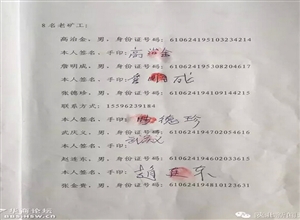 8名老矿工:
高治金,男,身份证号码:610624195103234214
本人签名,手印:高治金
唐明成,男,身份证号码:610624195308204617
本人签名,手印:唐明成
张德珍,男,身份证号码:610624194109144215
联系方式:15596239184
本人签名,手印:张德珍
武庆义,男,身份证号码:610624194702054616
本人签名,手印:武庆义
赵连东,男,身份证号码:610624194602033615
本人签名,手印:赵连东
张金黄,男,身份证号码:610624194810123631
华商论坛
BBS.HSW.CN